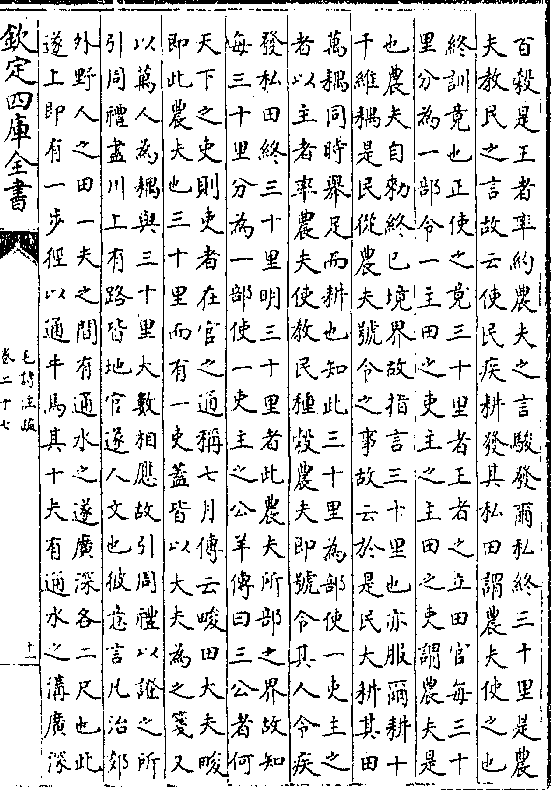 百穀是王者率約農夫之言駿發爾私終三十里是農
夫教民之言故云使民疾耕發其私田謂農夫使之也
終訓竟也正使之竟三十里者王者之立田官每三十
里分為一部令一主田之吏主之主田之吏謂農夫是
也農夫自勑終已境界故指言三十里也亦服爾耕十
千維耦是民從農夫號令之事故云於是民大耕其田
萬耦同時舉足而耕也知此三十里為部使一吏主之
者以主者率農夫使教民種穀農夫即號令其人令疾
發私田終三十里明三十里者此農夫所部之界故知
每三十里分為一部使一吏主之公羊傳曰三公者何
天下之吏則吏者在官之通稱七月傳云畯田大夫畯
即此農夫也三十里而有一吏蓋皆以大夫為之箋又
以萬人為耦與三十里大數相應故引周禮以證之所
引周禮盡川上有路皆地官遂人文也彼意言凡治郊
外野人之田一夫之間有通水之遂廣深各二尺也此
遂上即有一步徑以通牛馬其十夫有通水之溝廣深
欽定四庫全書
毛詩注疏
卷二十七
十一